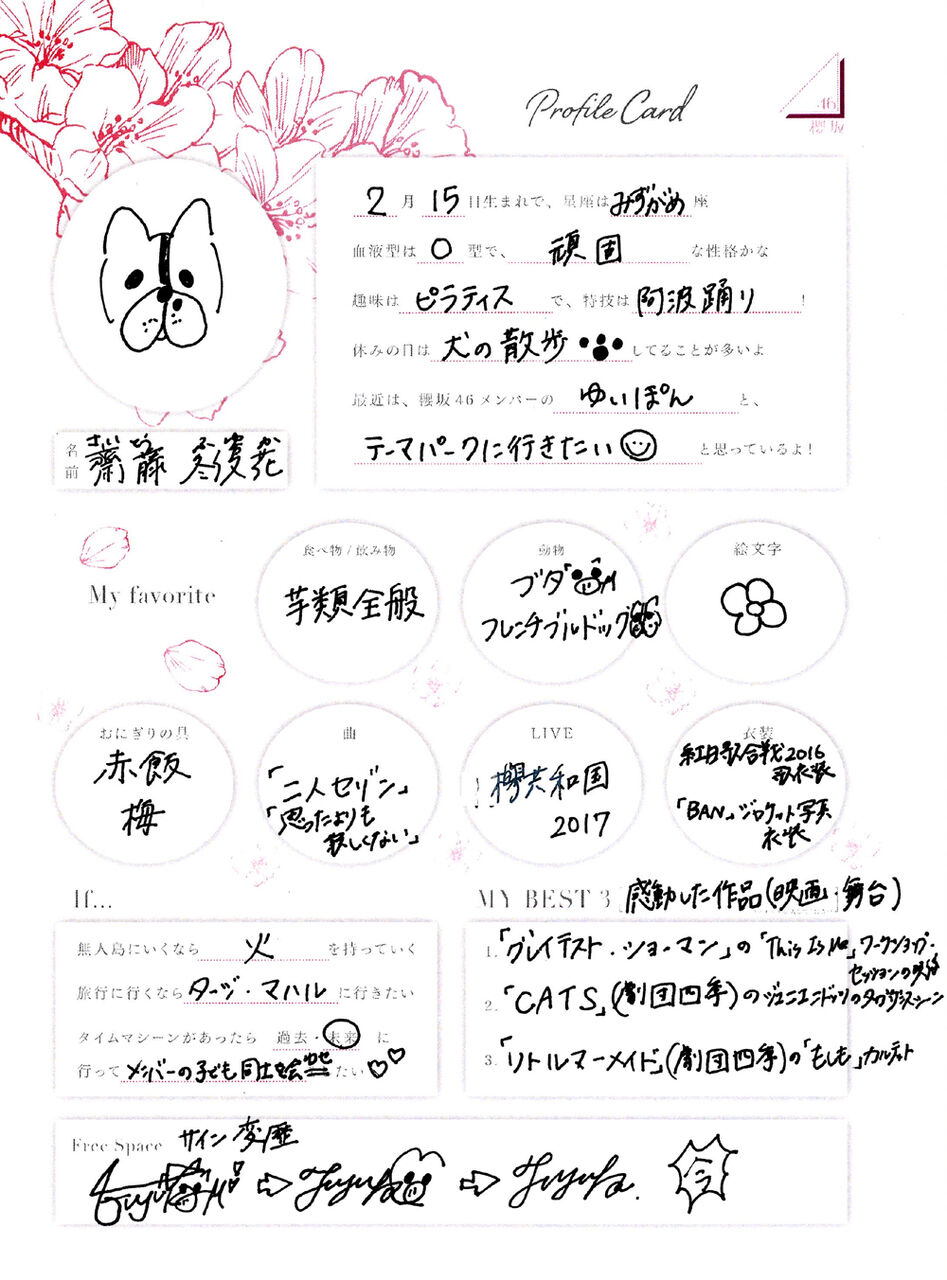 Profile Card
46
櫻坂
2月15日生まれで、星座はみずがめ座
血液型はO型で、頑固な性格かな
趣味はピラティスで、特技は阿波踊り!
休みの日は犬の散歩してることが多いよ
最近は、櫻坂46メンバーのゆいぽんと、
テーマパークに行きたいと思っているよ!
さいとう ふゆか
名前 齋藤 冬優花
My favorite
食べ物/飲み物
芋類全般
動物
ブタ
フレンチブルドッグ
絵文字
おにぎりの具
赤飯
梅
曲
「二人セゾン」
「思ったよりも
寂しくない」
LIVE
欅共和国
2017
衣装
紅白歌合戦2016
衣装
「BAN」ジャケット写真
衣装
If...
無人島にいくなら火を持っていく
旅行に行くならタージ・マハルに行きたい
タイムマシーンがあったら 過去・未来 に
行ってメンバーの子ども同士会わせたい
MY BEST 3 「感動した作品(映画・舞台)
1.「グレイテスト・ショーマン」の「This Is Me」ワークショップ・
セッションの映像
2.「CATS」(劇団四季)のジェニエニドッツのタップダンスシーン
3.「リトルマーメイド」(劇団四季)の「もしも」カルテット
Free Space サイン変歴
Fuyuka ⇨ Fuyuka ⇨ Fuyuka. 今